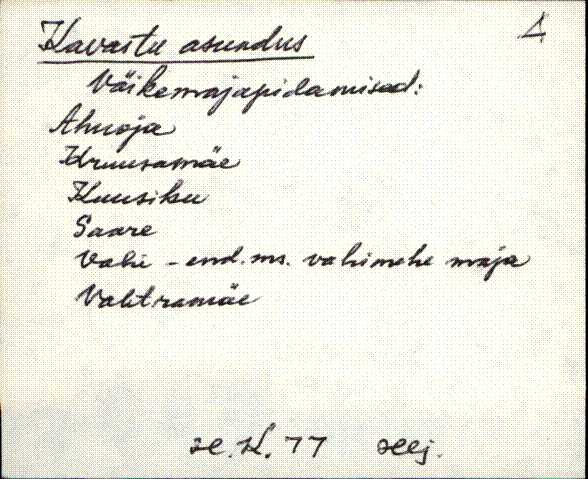 Kavastu asundus
Väikemajapidamised:
Ahuoja
Kruusamäe
Kuusiku
Saare
Vahi - end. ms. vahimehe maja
Vahtramäe
se. K. 77 seej.